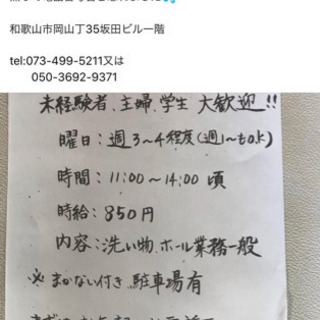 和歌山市岡山丁35坂田ビル一階
tel:073-499-5211又は
050-3692-9371
未経験者、主婦、学生 大歓迎!!
曜日：週3〜4程度(週1〜もo.k)
時間：11:00〜14:00 頃
時給：850円
内容：洗い物、ホール業務一般
※まかない付き、駐車場有